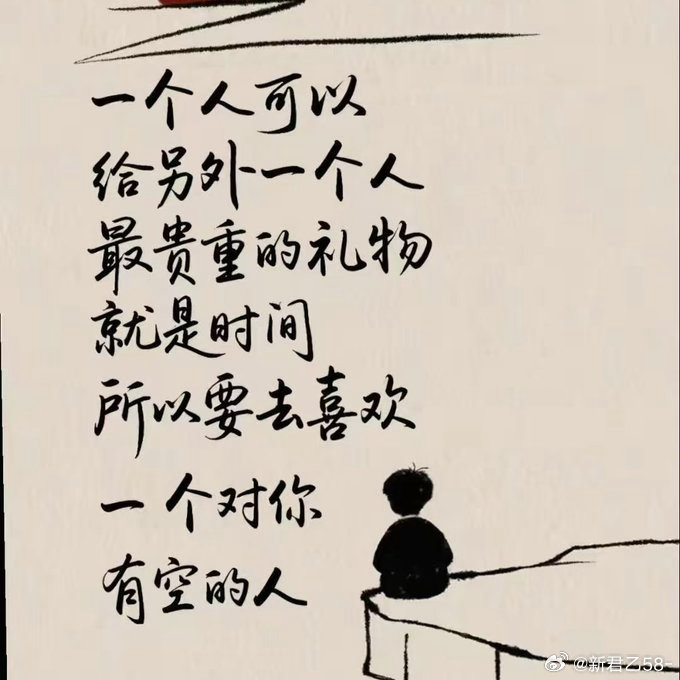 一个人可以
给另外一个人
最贵重的礼物
就是时间
所以要去喜欢
一个对你
有空的人
@新君乙58-